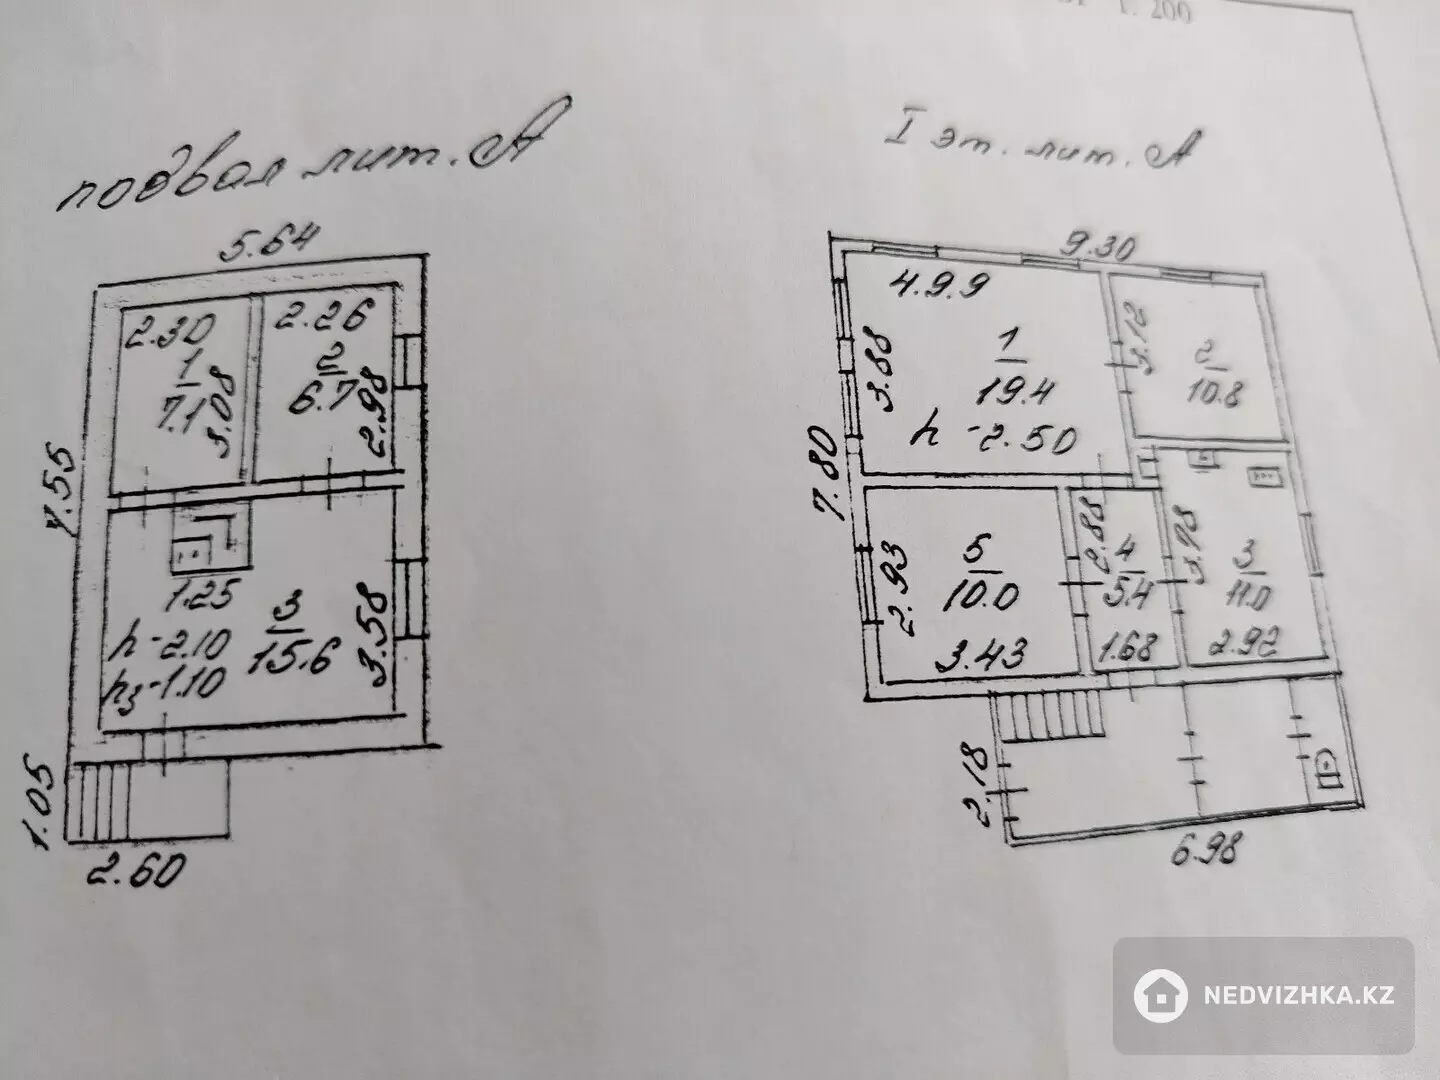 1:200
подвал лит. А
I эт. лит. А
5.64
2.30
2.26
1
7.1
3.08
2
6.7
2.98
7.55
1.25
3
15.6
3.58
h-2.10
hз-1.10
1.05
2.60
9.30
4.99
3.88
1
19.4
h-2.50
3.12
2
10.8
7.80
2.93
5
10.0
3.43
2.88
4
5.4
1.68
3.98
3
11.0
2.92
2.18
6.98
NEDVIZHKA.KZ